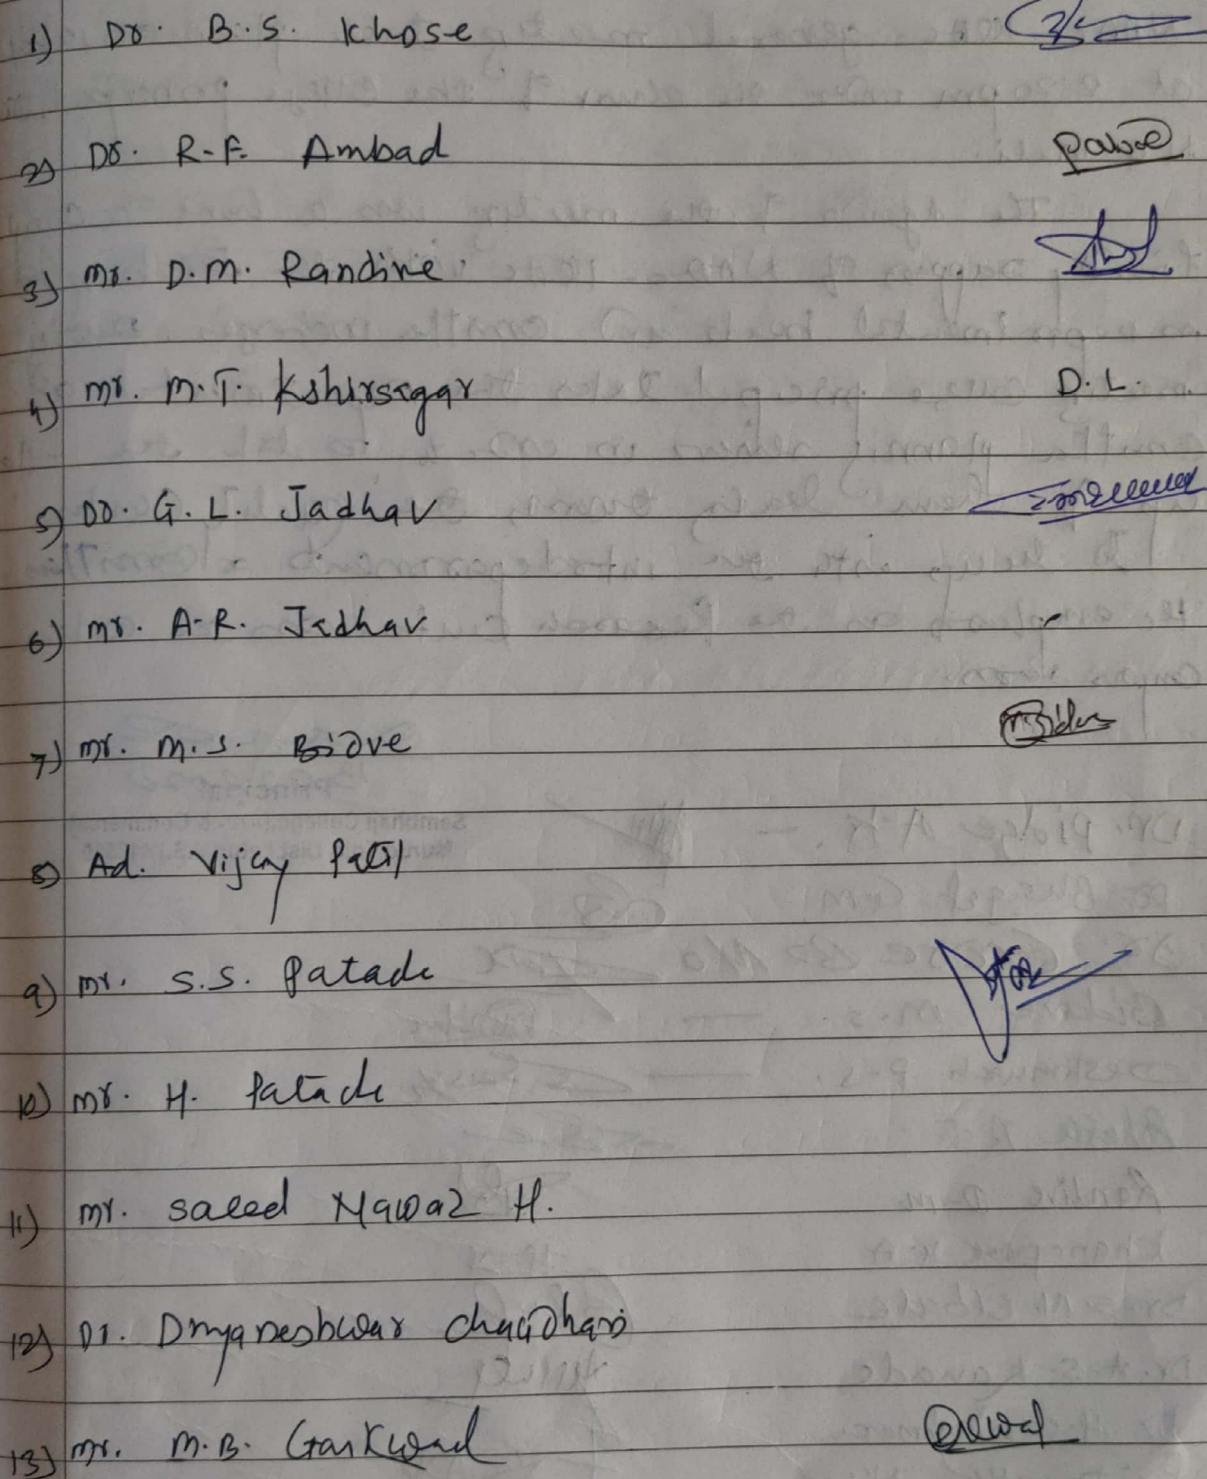 1) Dr. B.S. Khose
2) Dr. R.F. Ambad
3) Mr. D.M. Randive
4) Mr. M.T. Kshirsagar D.L.
5) Dr. G.L. Jadhav
6) Mr. A.R. Jadhav
7) Mr. M.S. Bidve
8) Ad. Vijay Patil
9) Mr. S.S. Patade
10) Mr. H. Patade
11) Mr. Saeed Nawaz H.
12) Dr. Dnyaneshwar Chaudhari
13) Mr. M.B. Gaikwad